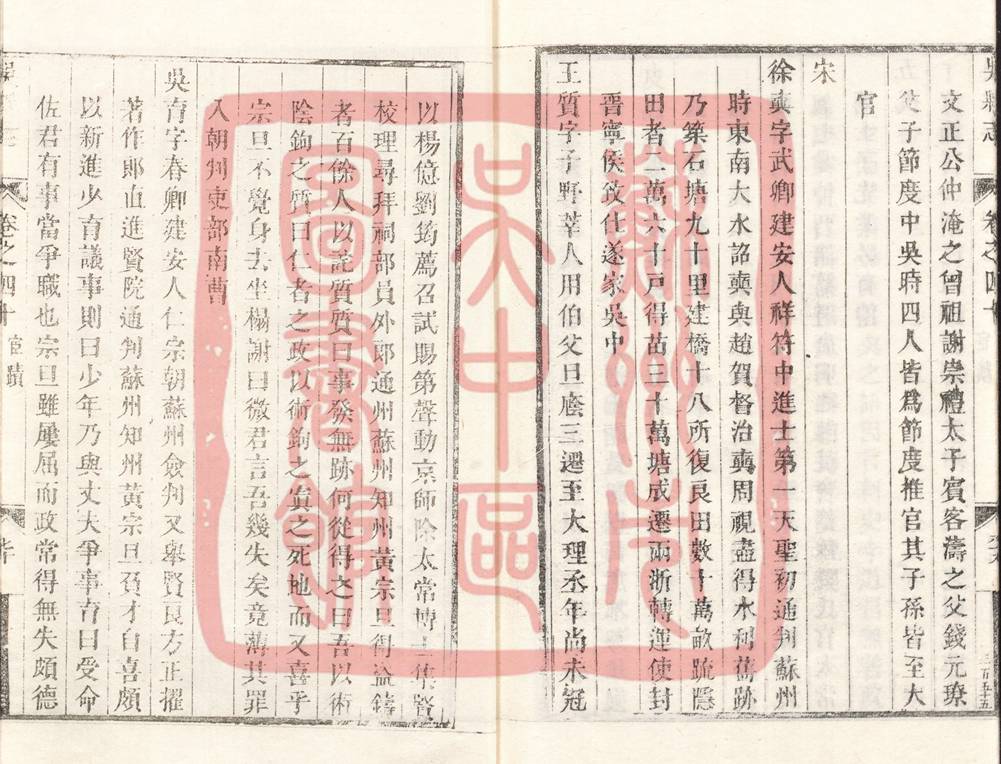 文正公仲淹之曾祖謝崇禮太子賓客濤之父錢元璙
父子節度中吳時四人皆爲節度推官其子孫皆至大
官
宋
徐奭字武卿建安人祥符中進士第一天聖初通判蘇州
時東南大水詔奭與趙賀督治奭周視盡得水利舊跡
乃築石塘九十里建橋十八所復良田數十萬畝䟽隱
田者二萬六千戸得苗三十萬塘成遷兩浙轉運使封
晋寧侯致仕遂家吳中
王質字子野莘人用伯父旦廕三遷至大理丞年尚未冠
以楊億劉筠薦召試賜第聲動京師除太常博士集賢
校理尋拜祠部員外郎通州蘇州知州黃宗旦得盜鑄
者百餘人以詫質質曰事發無跡何從得之曰吾以術
陰鉤之質曰仁者之政以術鉤之寘之死地而又喜乎
宗旦不覺身去坐榻謝曰微君言吾幾失矣竟薄其罪
入朝判吏部南曹
吳育字春卿建安人仁宗朝蘇州僉判又舉賢良方正擢
著作郎直進賢院通判蘇州知州黃宗旦負才自喜頗
以新進少育議事則曰少年乃與丈夫爭事育曰受命
佐君有事當爭職也宗旦雖屢屈而政常得無失頗德
卷之四十
宦蹟
蘇州市
吳中區
圖書館